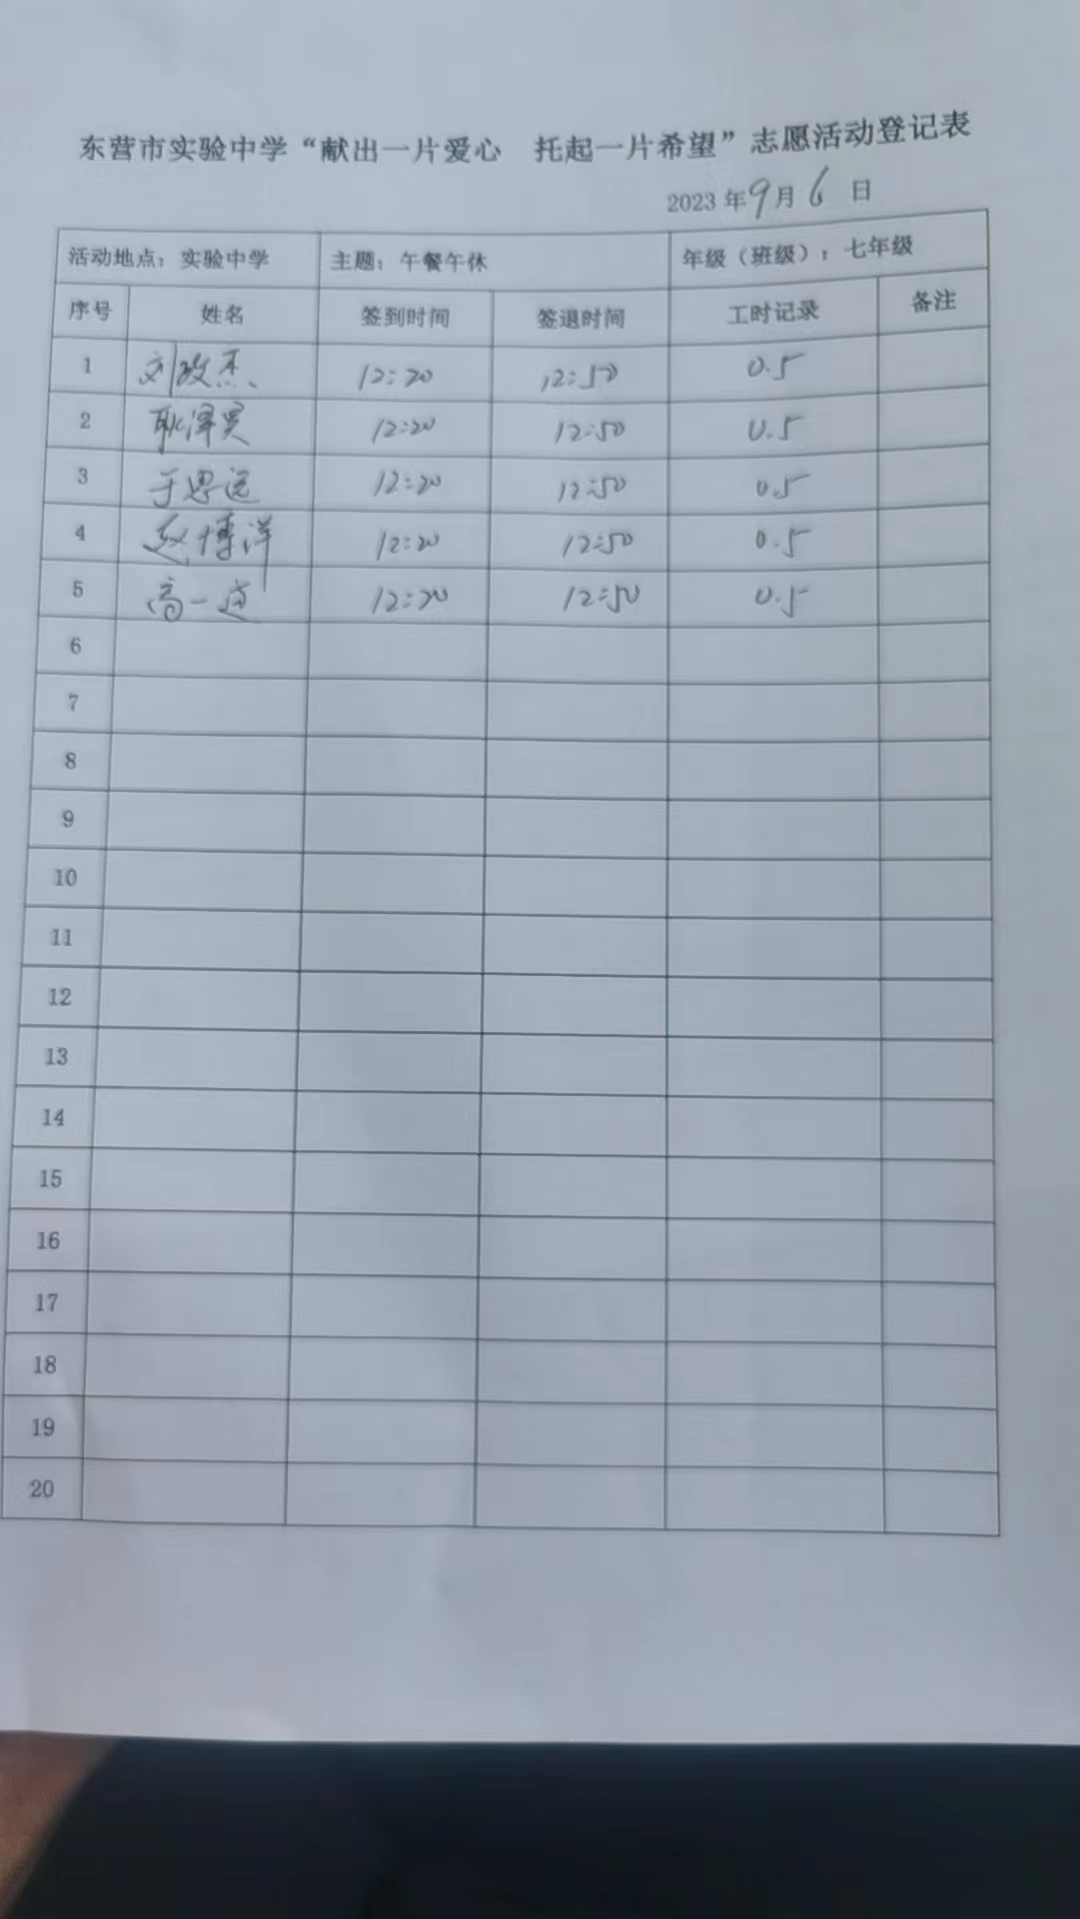 东营市实验中学“献出一片爱心 托起一片希望”志愿活动登记表
2023年9月6日
活动地点：实验中学 主题：午餐午休 年级（班级）：七年级
序号 姓名 签到时间 签退时间 工时记录 备注
1 刘政杰 12:20 12:50 0.5
2 耿泽昊 12:20 12:50 0.5
3 于思远 12:20 12:50 0.5
4 赵博洋 12:20 12:50 0.5
5 高一 12:20 12:50 0.5
6
7
8
9
10
11
12
13
14
15
16
17
18
19
20